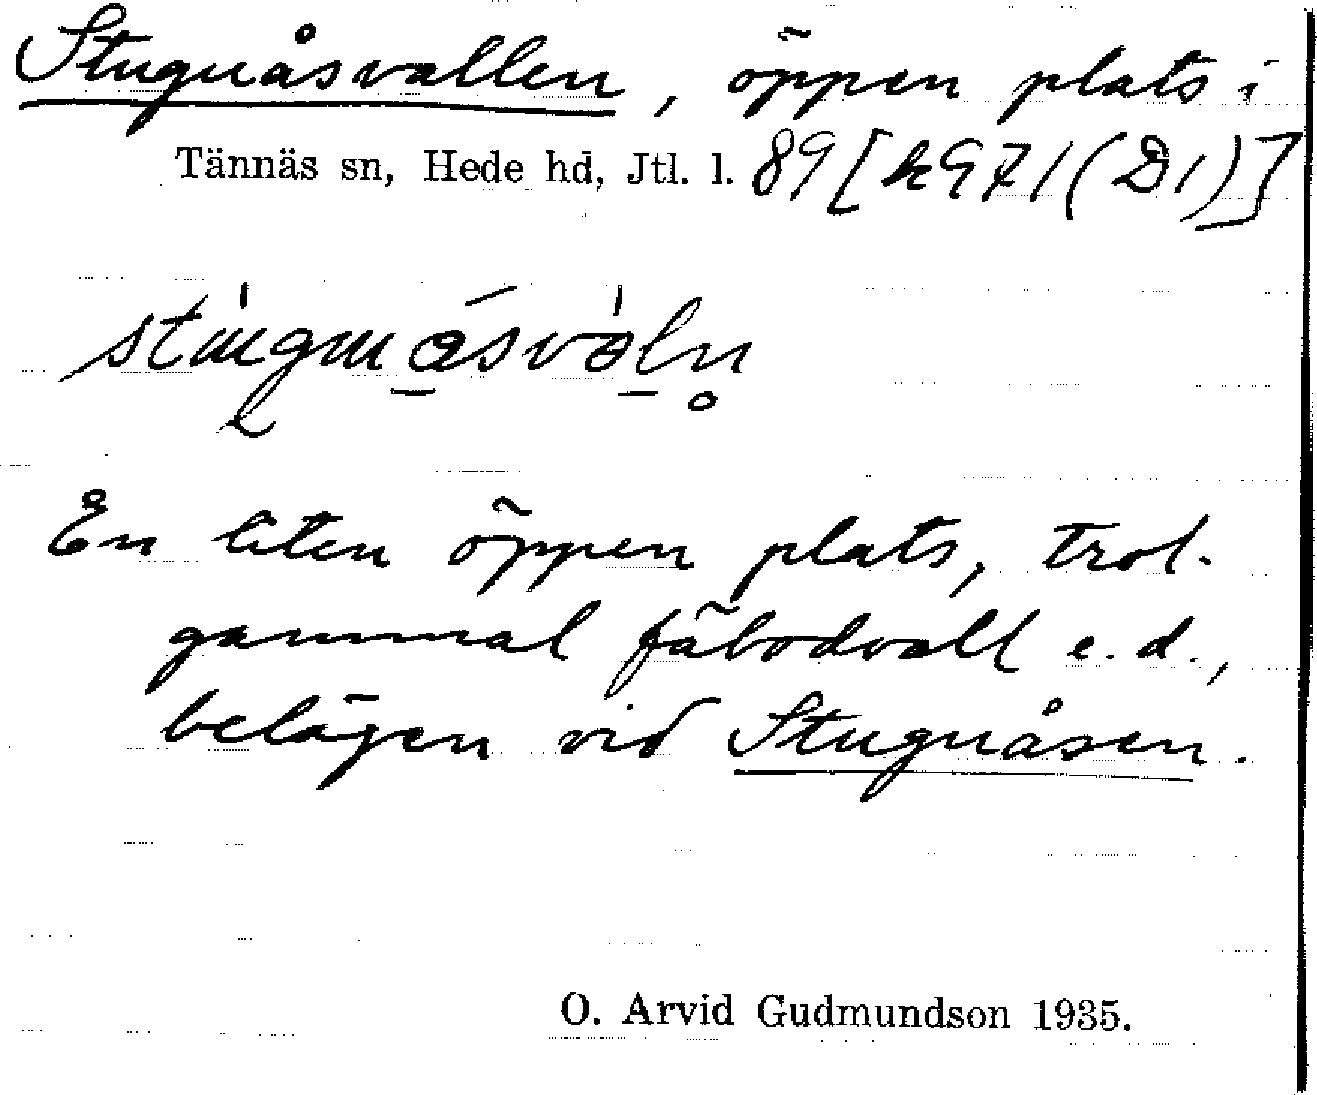 Stuguåsvallen, öppen plats i
Tännäs sn, Hede hd, Jtl. l. 89 [k971(D1)]
En liten öppen plats, trol.
gammal fäbodvall e.d.,
belägen vid Stuguåsen.
O. Arvid Gudmundson 1935.